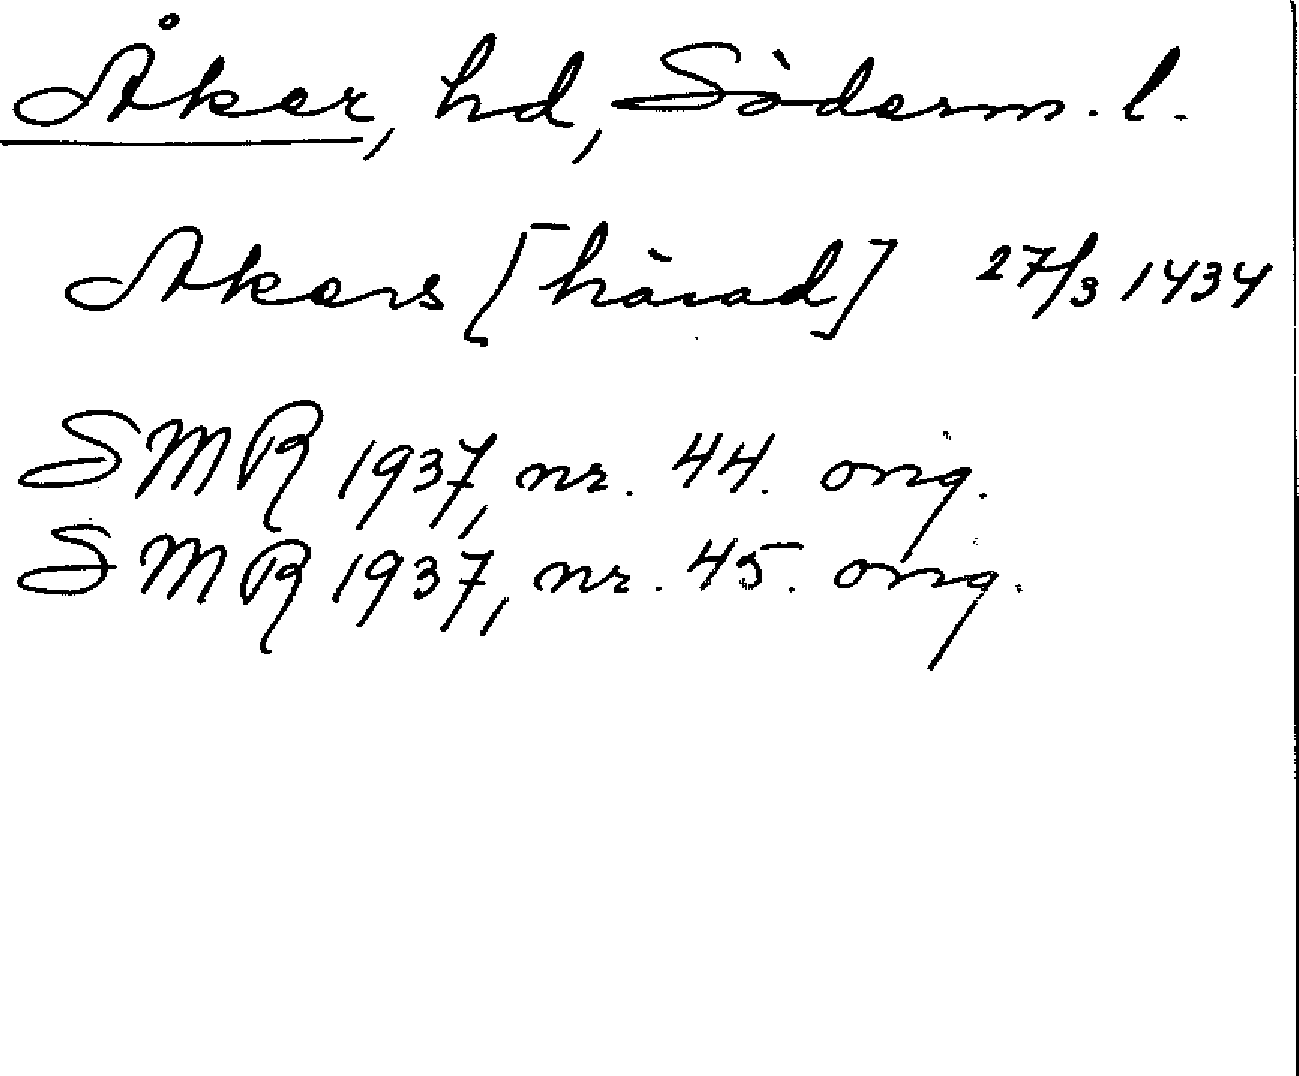 Åker, hd, Söderm. l.
Akers [härad] 27/3 1434
SMR 1937, nr. 44. orig.
SMR 1937, nr. 45. orig.